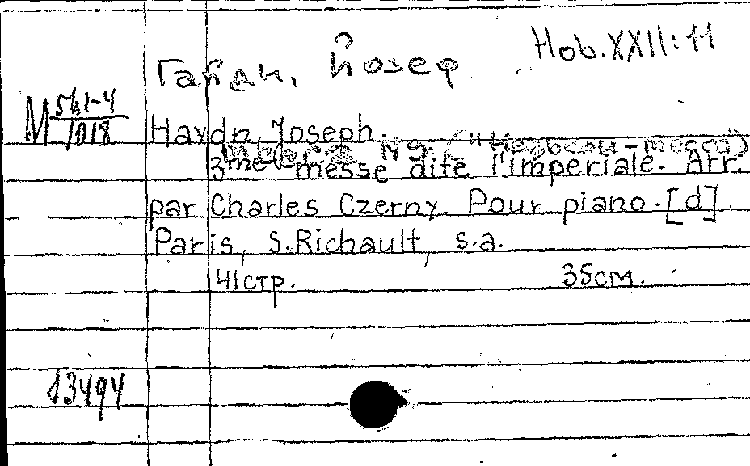 Hob.XXII:11
Гайдн, Йозеф
М 561-4/1018
Haydn, Joseph.
№9. ("Нельсон-месса")
3me messe dite l'imperiale. Arr.
par Charles Czerny. Pour piano.[d]
Paris, S.Richault, s.a.
41стр. 35см.
13494